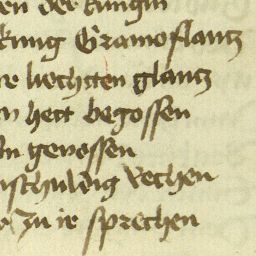 en der kungin
kung Gramoflantz
er liechten glantz
n hett begossen
in genossen
nschuldig rechen
zu ir sprechen